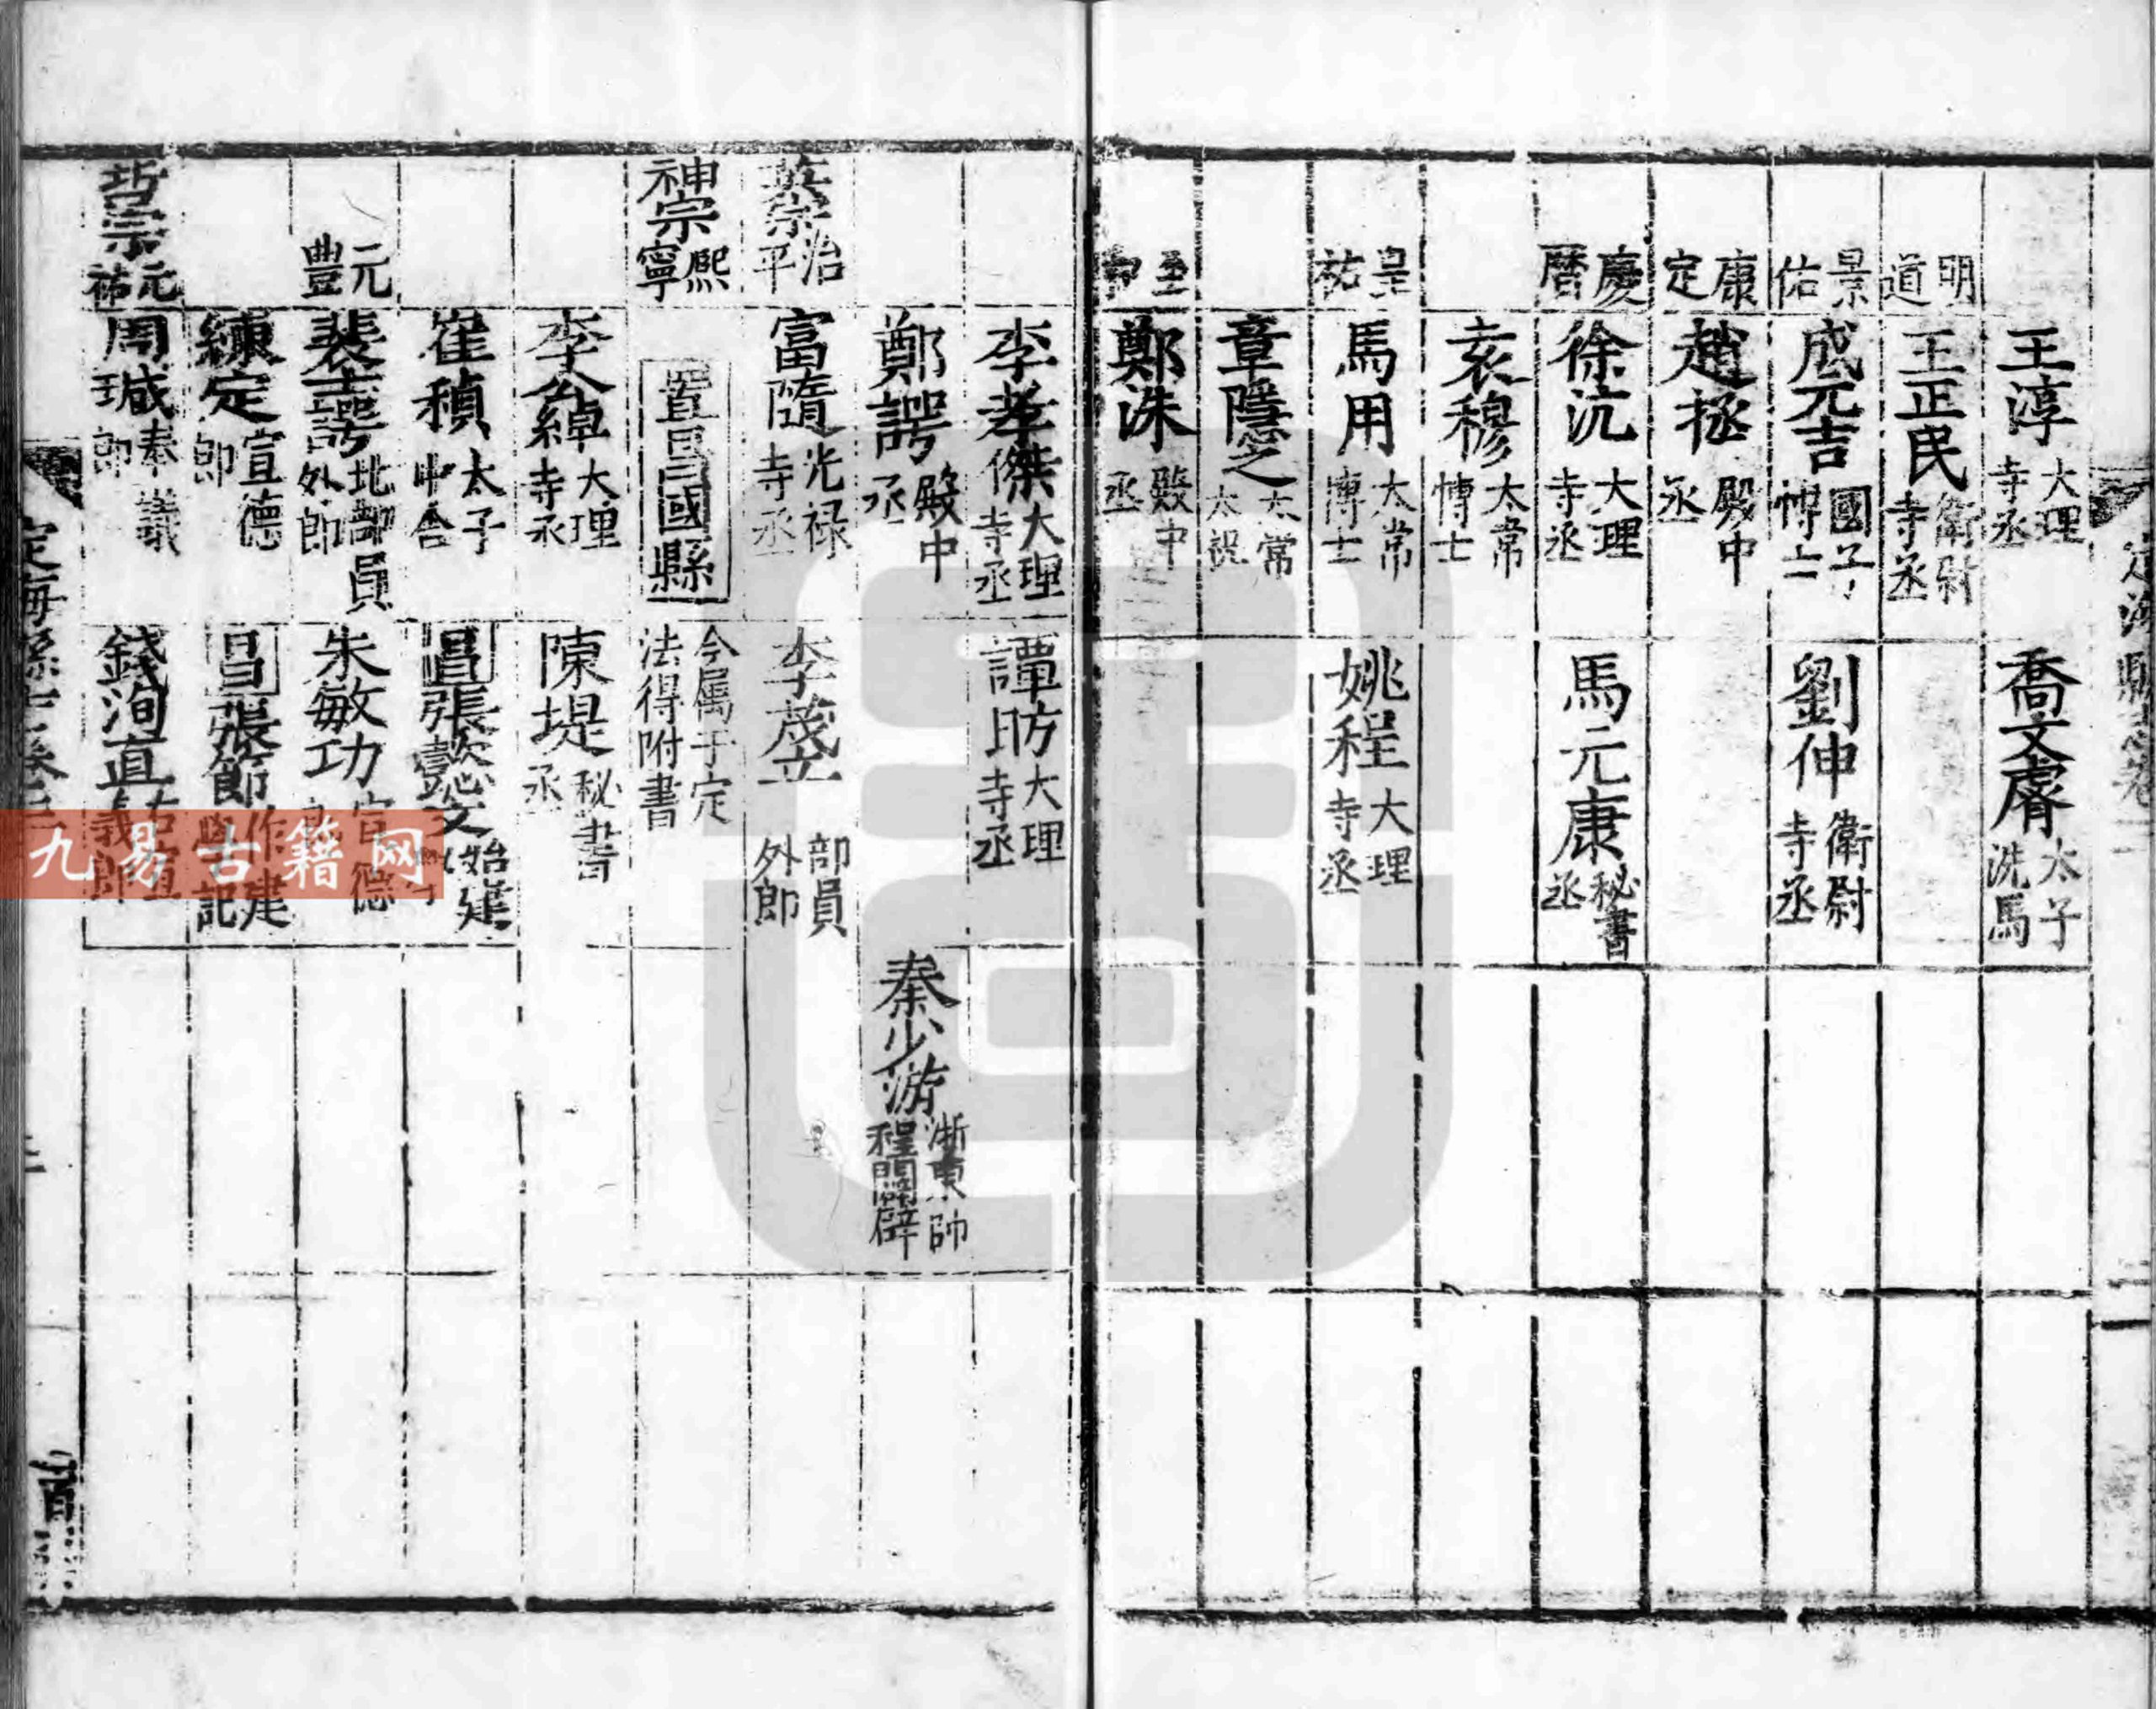 王淳大理寺丞 喬文膺太子洗馬
明道 王正民衛尉寺丞
景佑 成元吉國子博士 劉伸衛尉寺丞
康定 趙拯殿中丞
慶曆 徐沆大理寺丞 馬元康秘書丞
袁穆太常博士
皇祐 馬用太常博士 姚程大理寺丞
章隱之太常太祝
至和 鄭洙殿中丞
李孝傑大理寺丞 譚昉大理寺丞
鄭諤殿中丞 秦少游浙東帥程闢辟
英宗治平 富隋光祿寺丞 李茂 部員外郎
神宗熙寧 置昌國縣 今属于定法得附書
李公綽大理寺丞 陳堤秘書丞
崔稹太子中舍 昌張懿文始建
元豐 裴士諤北部員外郎 朱敏功宣德
練定宣德郎 昌張節作建 記
哲宗元祐 周瑊奉議郎 錢洵直
定海縣志卷
九易古籍网